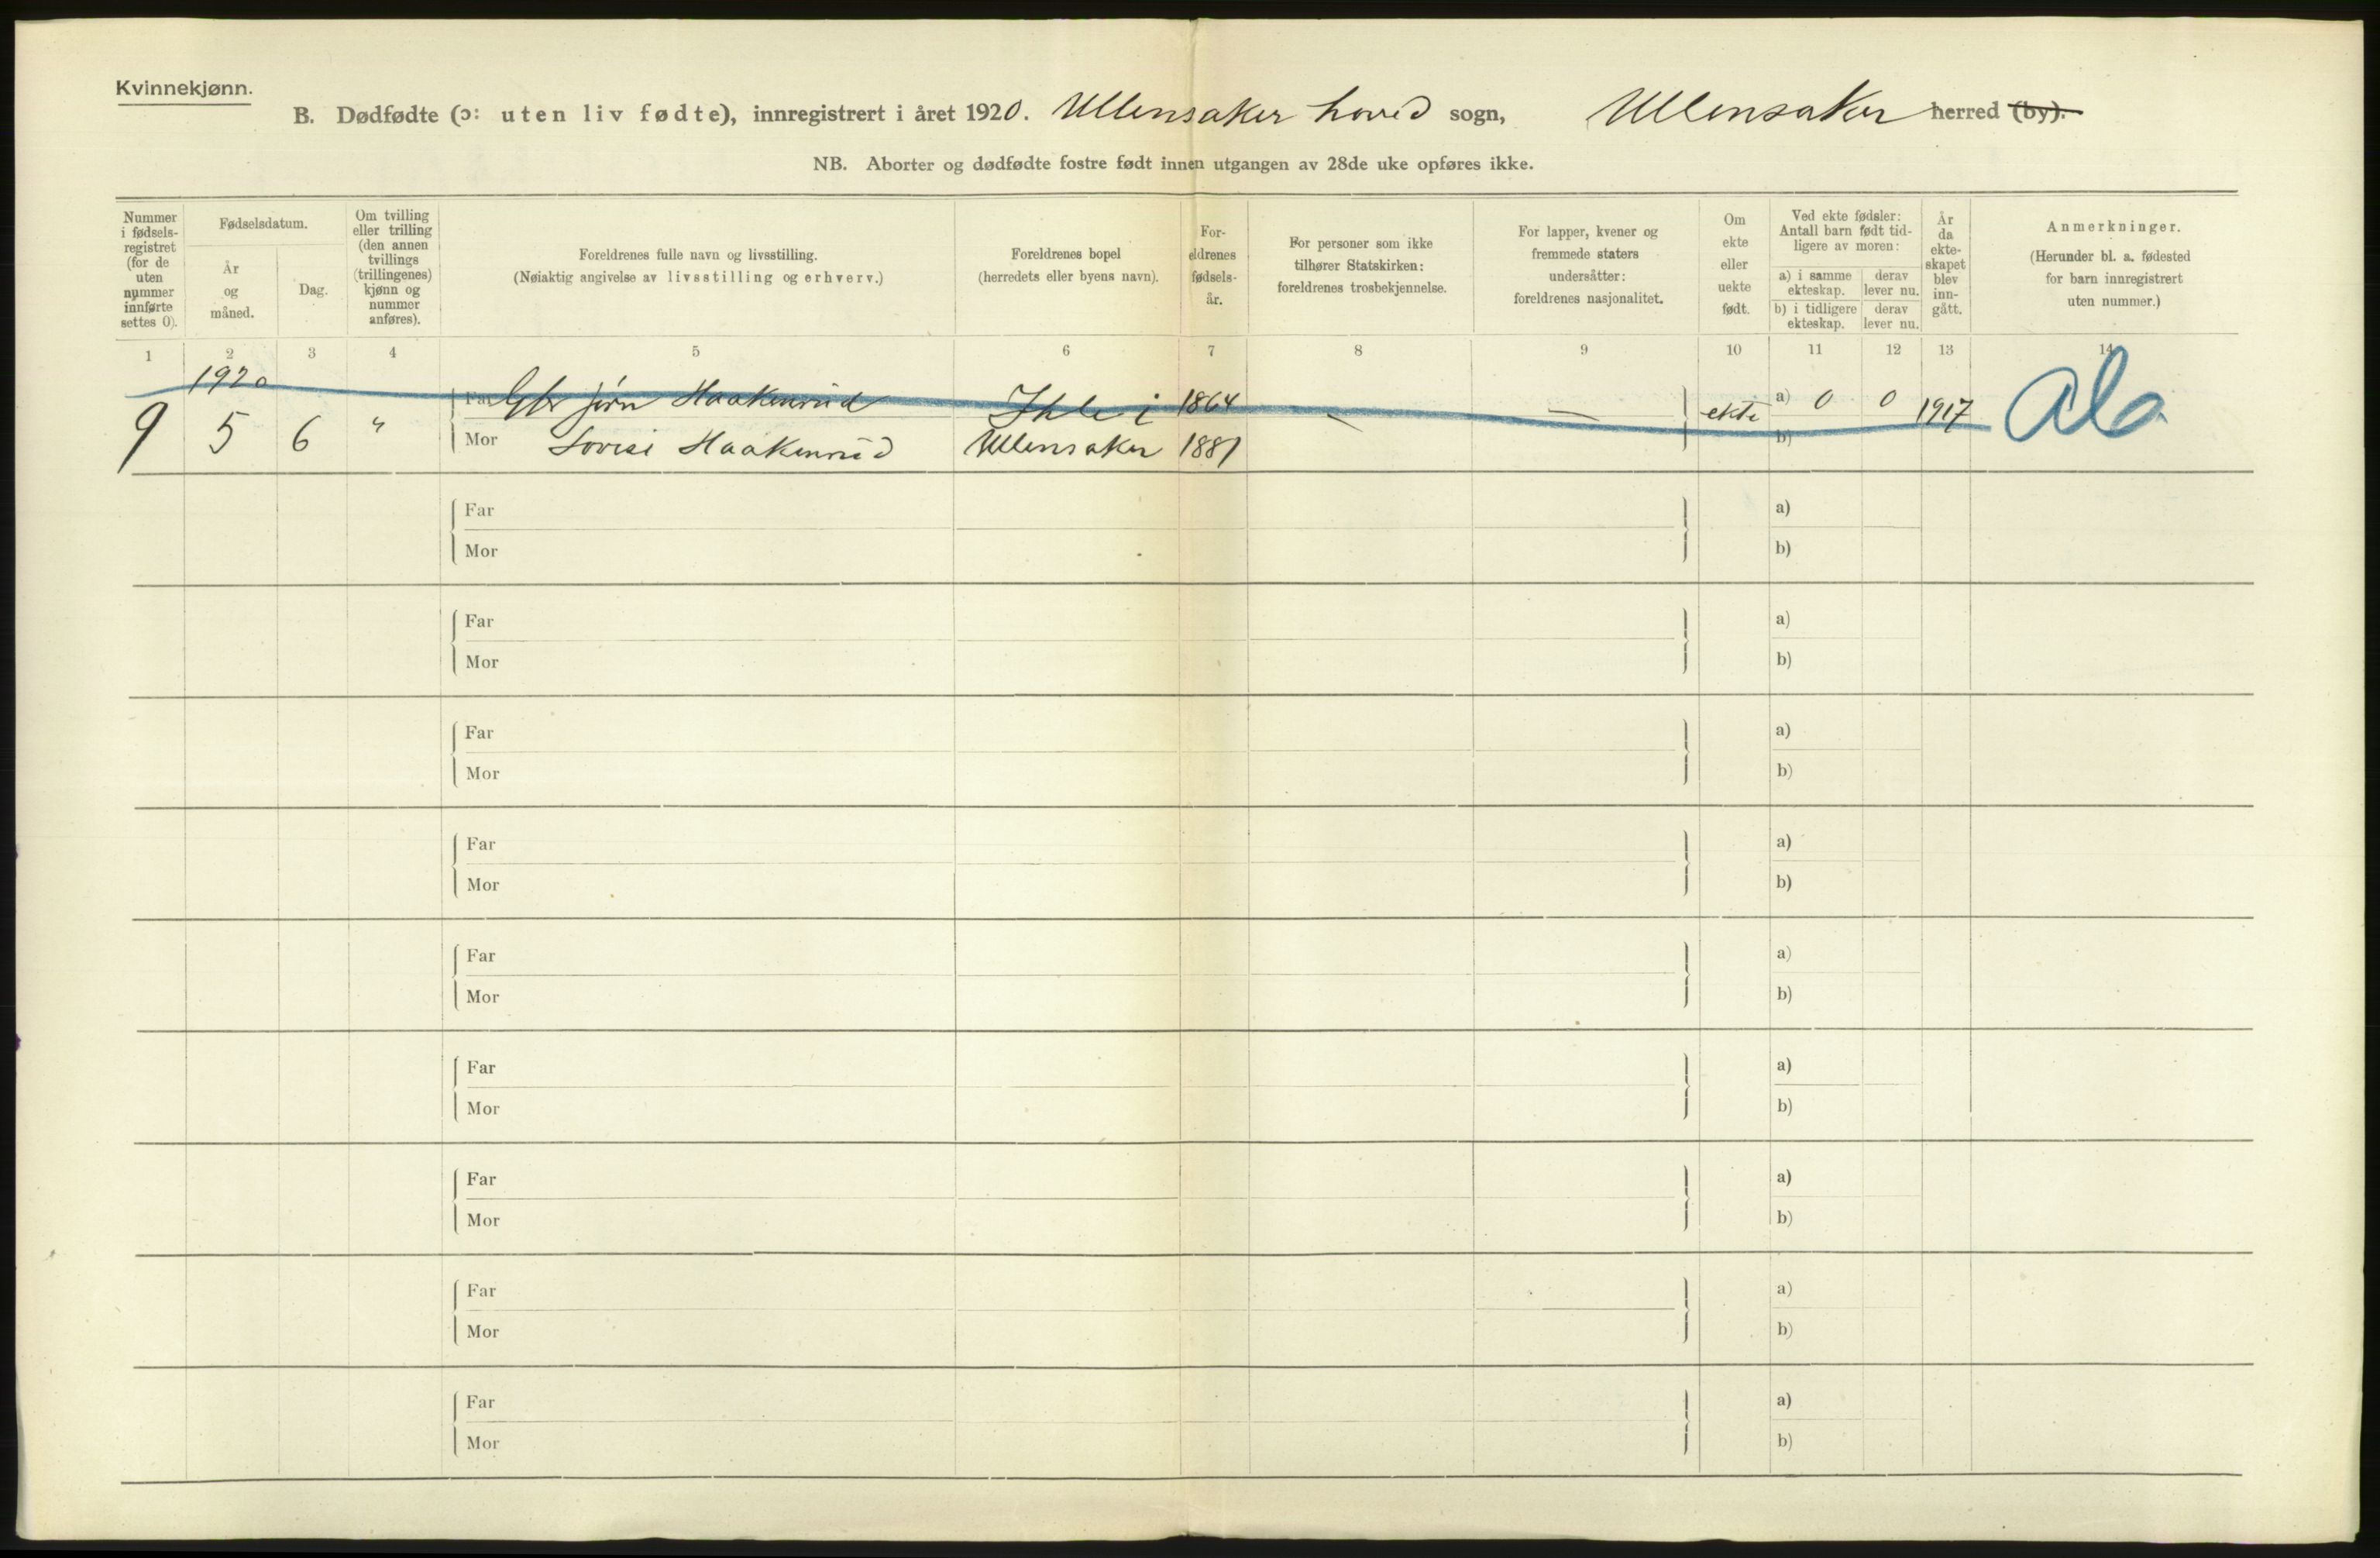 Kvinnekjønn.
B. Dødfødte (ɔ: uten liv fødte), innregistrert i året 1920. Ullensaker hoved sogn, Ullensaker herred (by).
NB. Aborter og dødfødte fostre født innen utgangen av 28de uke opføres ikke.
Nummer i fødsels-registret (for de uten nummer innførte settes 0).
Fødselsdatum.
År og måned.
Dag.
Om tvilling eller trilling (den annen tvillings (trillingenes) kjønn og nummer anføres).
Foreldrenes fulle navn og livsstilling.
(Nøiaktig angivelse av livsstilling og erhverv.)
Foreldrenes bopel
(herredets eller byens navn).
For-eldrenes fødsels-år.
For personer som ikke tilhører Statskirken: foreldrenes trosbekjennelse.
For lapper, kvener og fremmede staters undersåtter: foreldrenes nasjonalitet.
Om ekte eller uekte født.
Ved ekte fødsler: Antall barn født tid-ligere av moren:
a) i samme ekteskap.
derav lever nu.
b) i tidligere ekteskap.
derav lever nu.
År da ekte-skapet blev inn-gått.
Anmerkninger.
(Herunder bl. a. fødested for barn innregistrert uten nummer.)
1 2 3 4 5 6 7 8 9 10 11 12 13 14
1920
Far Gbr Jørn Haakenrud Ihle i 1864 — — ekte a) 0 0 1917
9 5 6 " Mor Lovise Haakenrud Ullensaker 1881 b)
Far a)
Mor b)
Far a)
Mor b)
Far a)
Mor b)
Far a)
Mor b)
Far a)
Mor b)
Far a)
Mor b)
Far a)
Mor b)
Far a)
Mor b)
Far a)
Mor b)